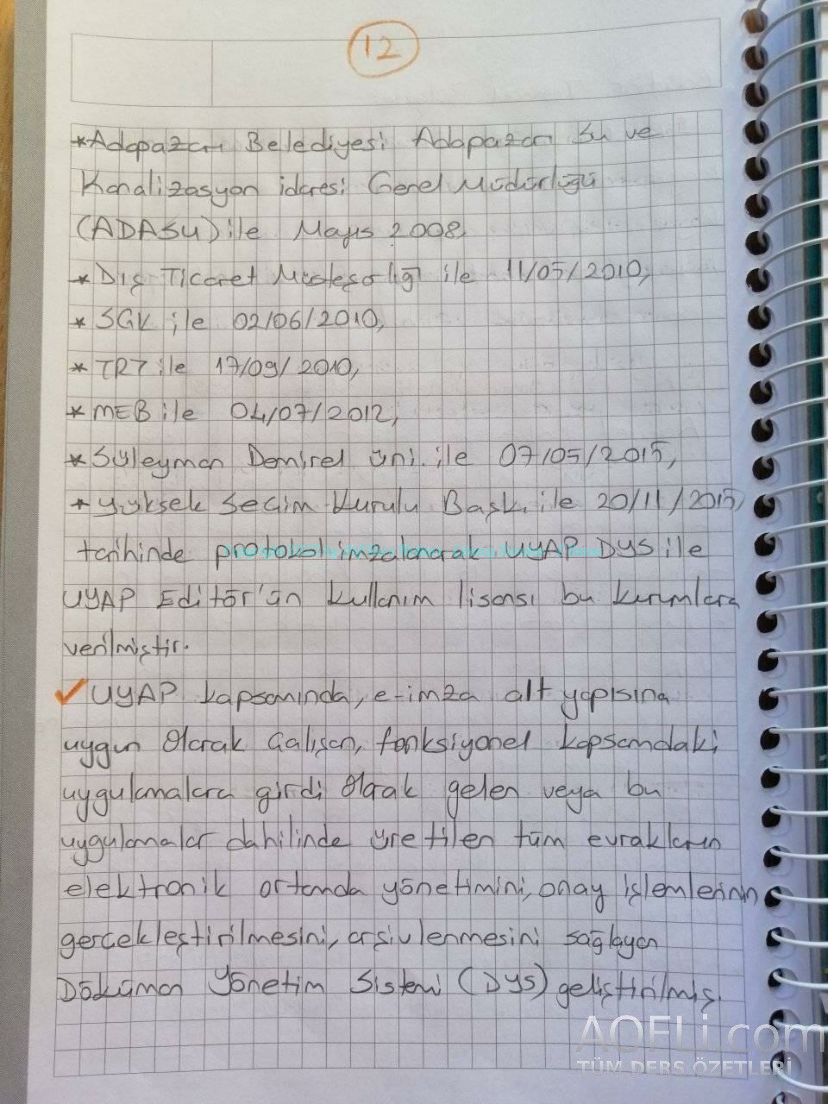 12
*Adapazarı Belediyesi Adapazarı Su ve
Kanalizasyon idaresi Genel Müdürlüğü
(ADASU) ile Mayıs 2008,
*Dış Ticaret Müsteşarlığı ile 11/05/2010,
*SGK ile 02/06/2010,
*TRT ile 17/09/2010,
*MEB ile 04/07/2012,
*Süleyman Demirel üni. ile 07/05/2015,
*Yüksek Seçim Kurulu Başk. ile 20/11/2015,
tarihinde protokol imzalanarak UYAP DYS ile
UYAP Editör'ün kullanım lisansı bu kurumlara
verilmiştir.
✓UYAP kapsamında, e-imza alt yapısına
uygun olarak çalışan, fonksiyonel kapsamdaki
uygulamalara girdi olarak gelen veya bu
uygulamalar dahilinde üretilen tüm evrakların
elektronik ortamda yönetimini, onay işlemlerinin
gerçekleştirilmesini, arşivlenmesini sağlayan
Döküman Yönetim Sistemi (DYS) geliştirilmiş.
AOFLi.com
TÜM DERS ÖZETLERİ